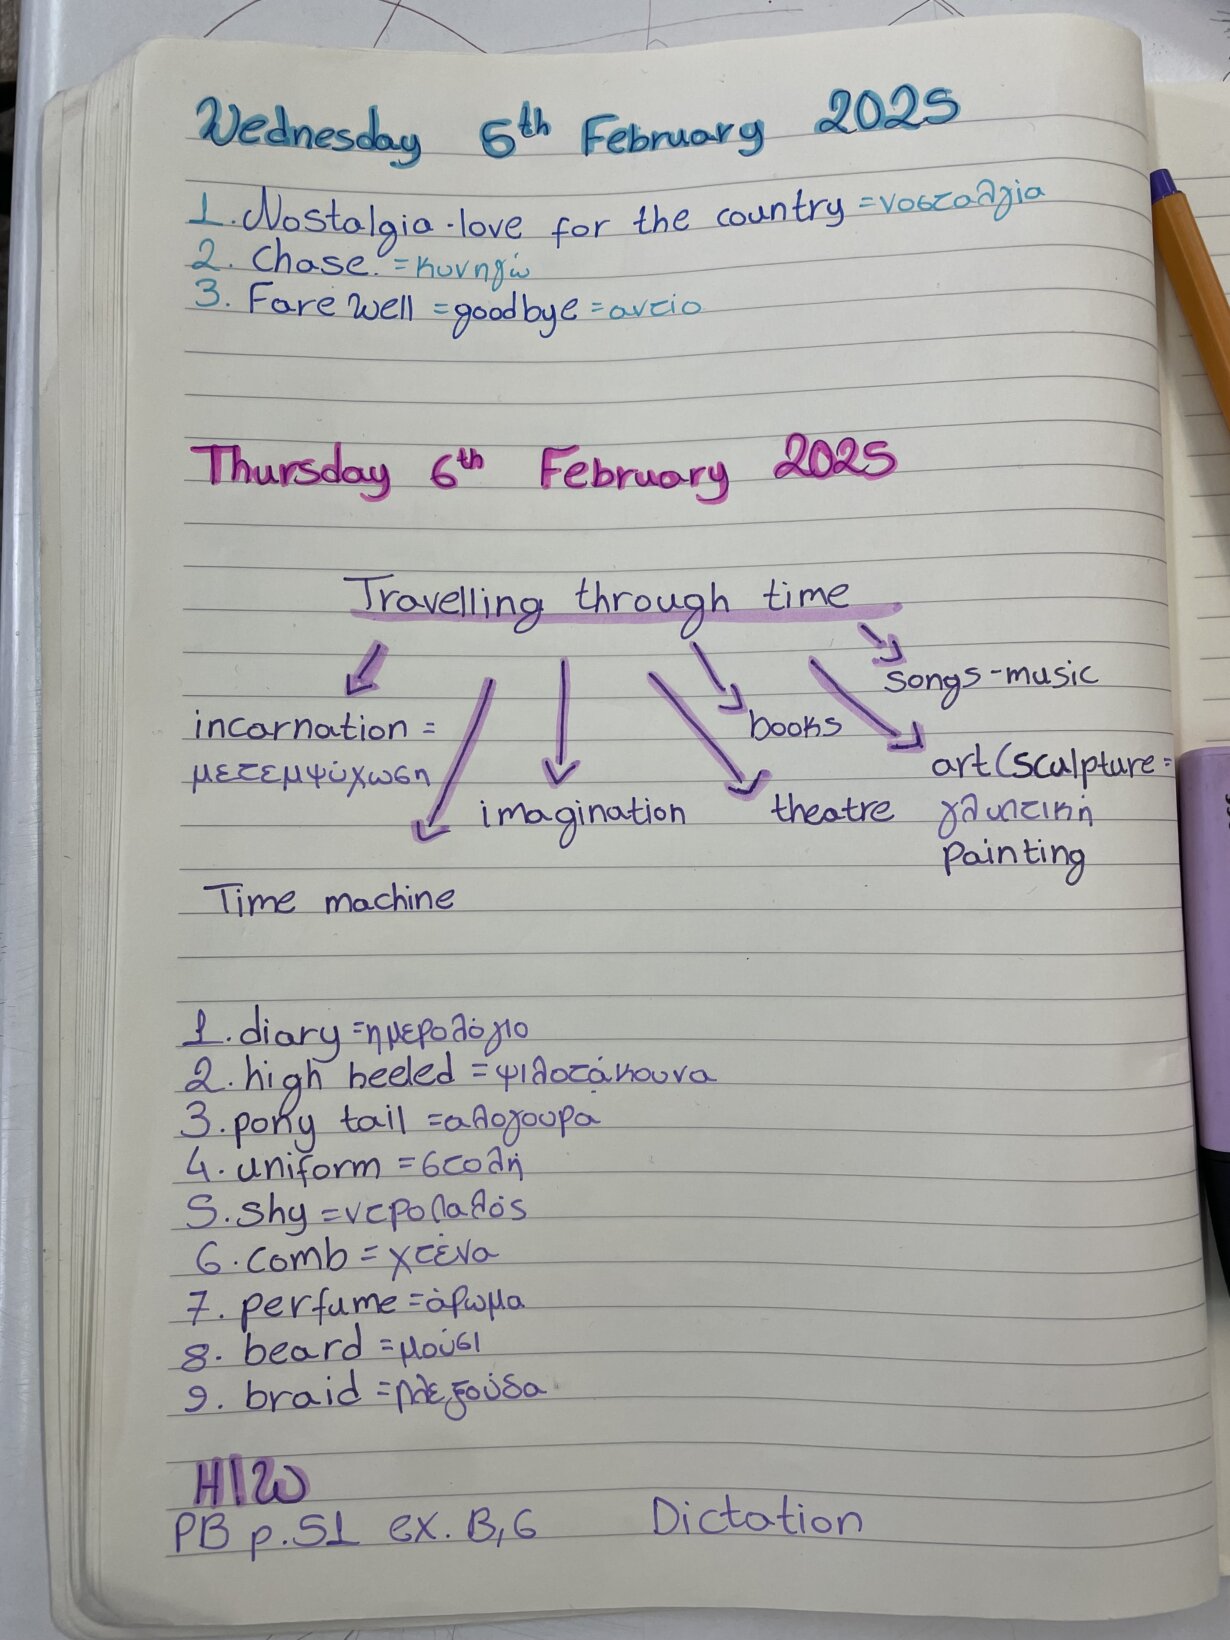 Wednesday 5th February 2025
1. Nostalgia - love for the country = νοσταλγία
2. Chase = κυνηγώ
3. Fare well = goodbye = αντίο
Thursday 6th February 2025
Travelling through time
songs - music
incarnation =
books
μετεμψύχωση
art (sculpture =
imagination
theatre
γλυπτική
painting
Time machine
1. diary = ημερολόγιο
2. high heeled = ψιλοτάκουνα
3. pony tail = αλογουρα
4. uniform = στολή
5. shy = ντροπαλός
6. comb = χτένα
7. perfume = άρωμα
8. beard = μούσι
9. braid = πλεξούδα
H/W
PB p.51 ex. B, G Dictation